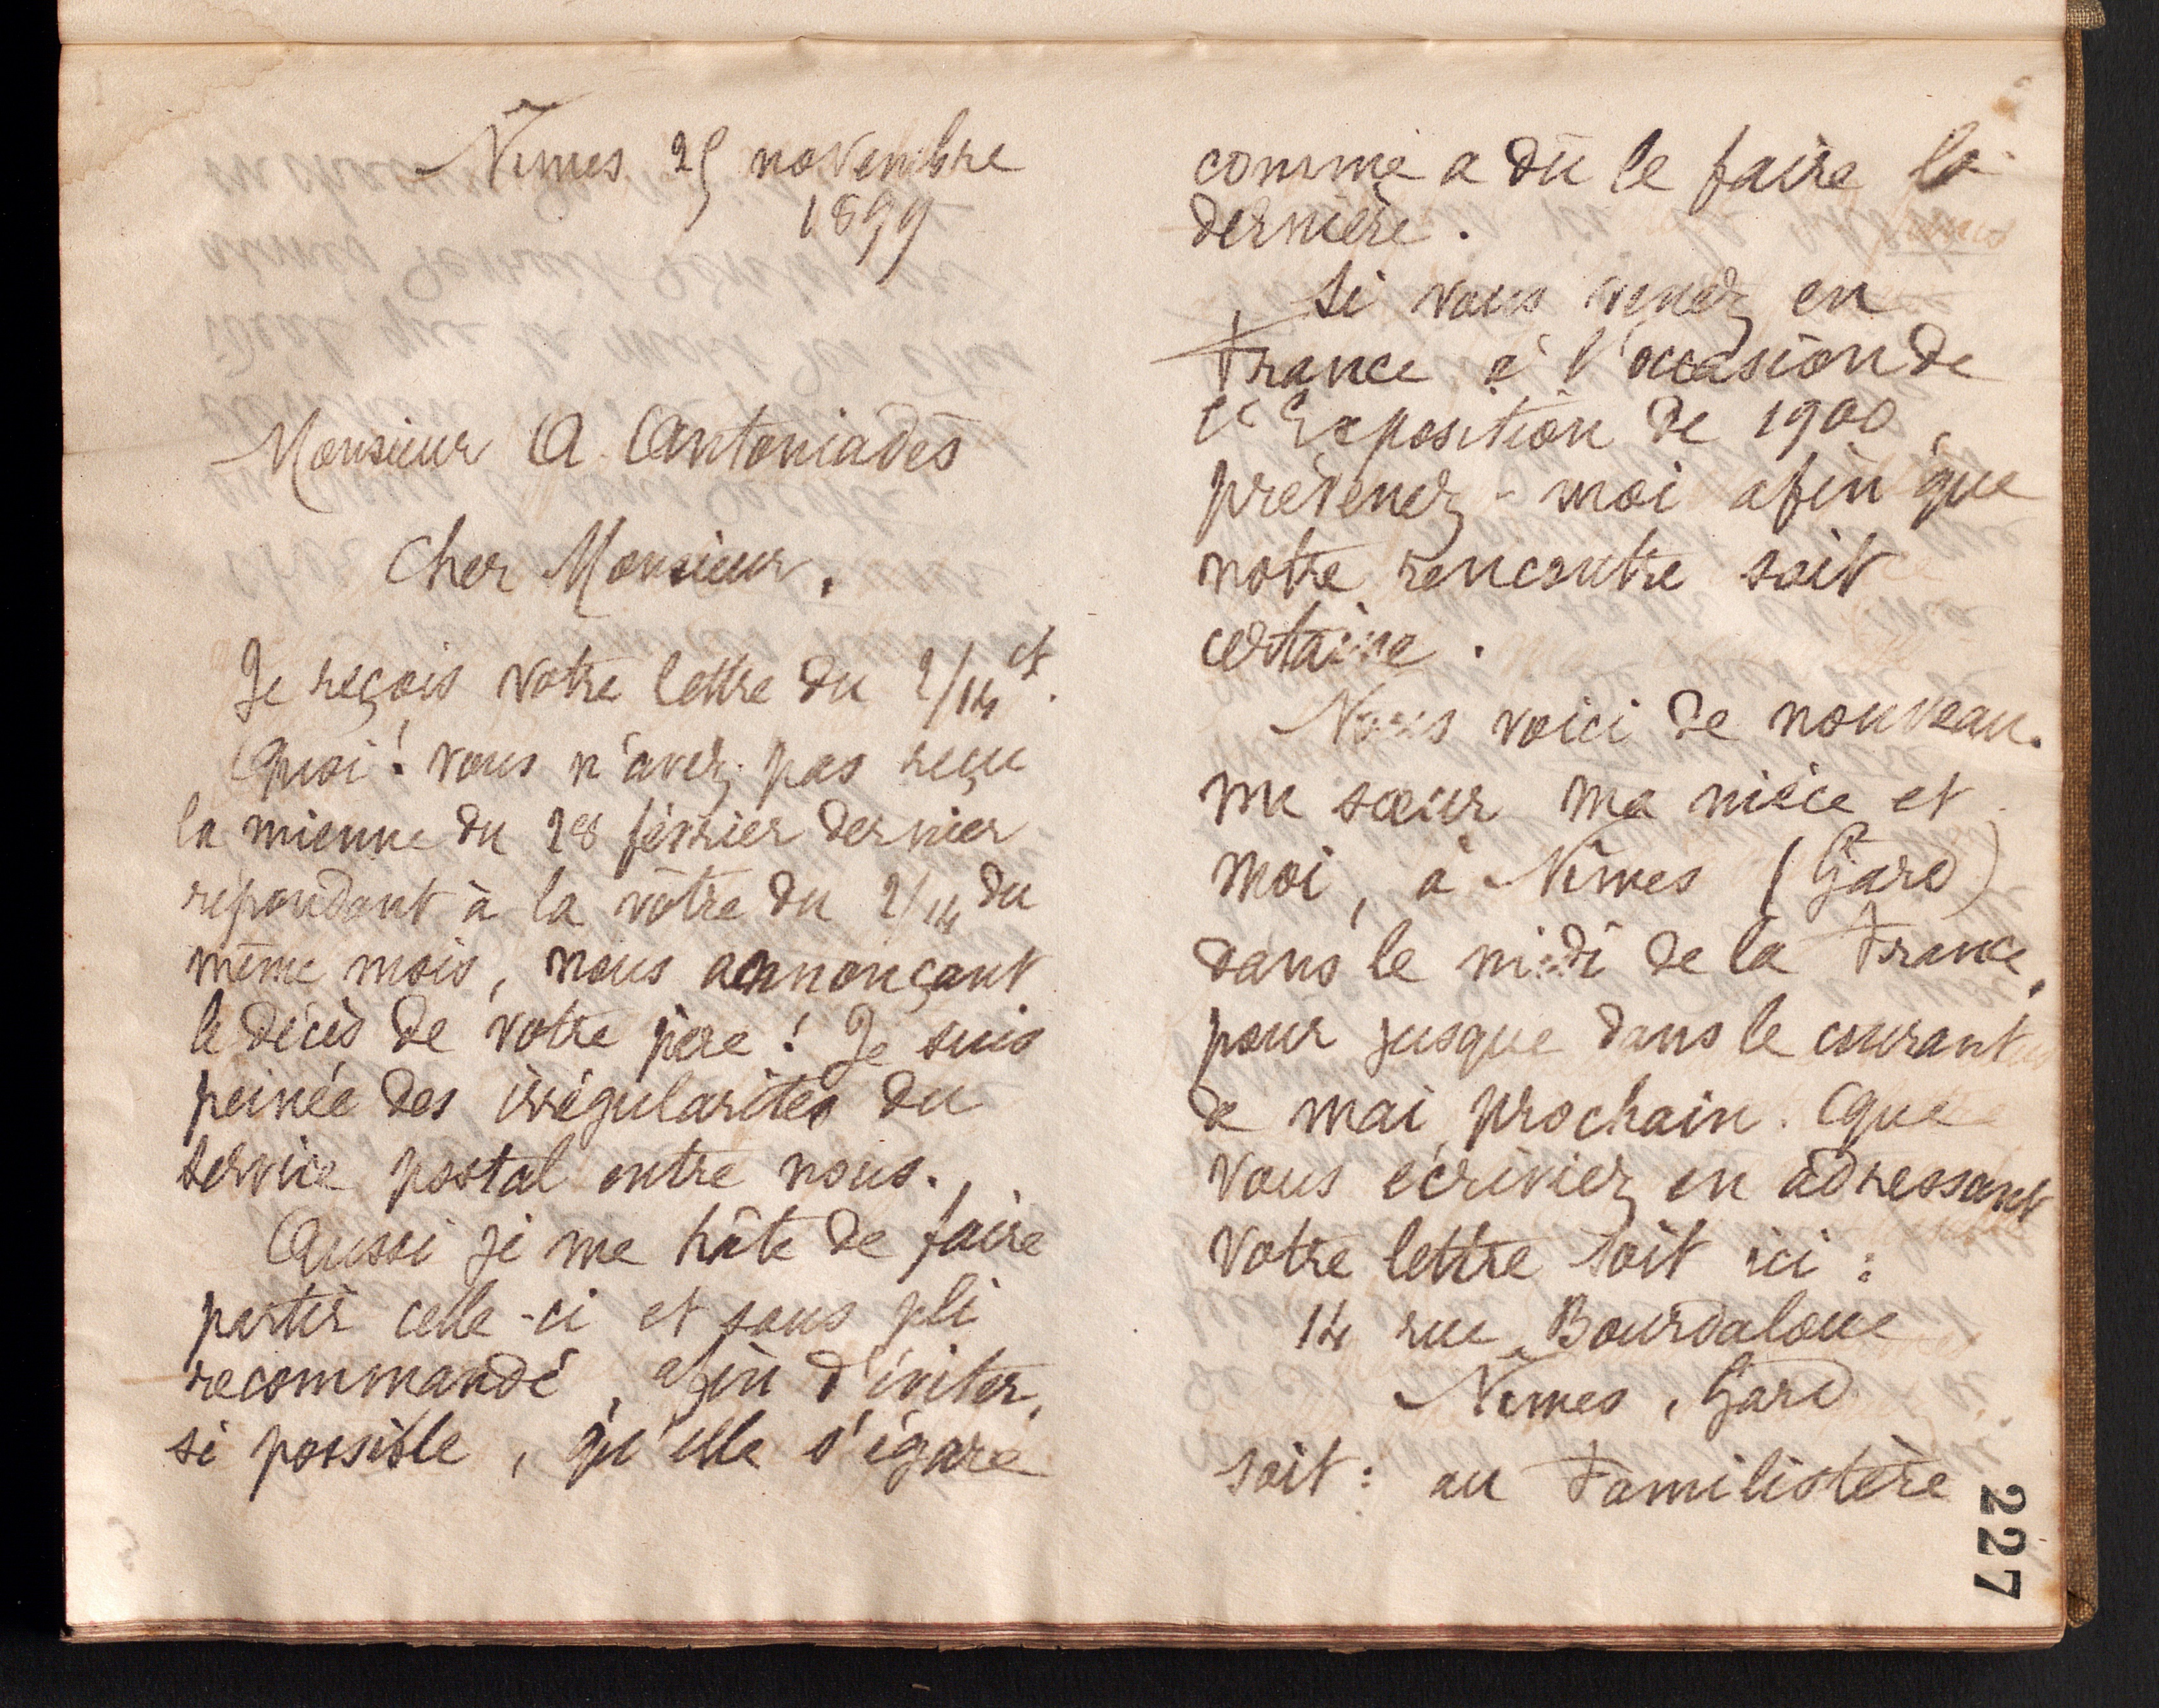 Nîmes 25 novembre
1899
Monsieur A. Antoniadès
Cher Monsieur,
Je reçois votre lettre du 2/14 ct.
Quoi! vous n'avez pas reçu
la mienne du 28 février dernier
répondant à la vôtre du 2/14 du
même mois, nous annonçant
le décès de votre père! Je suis
peinée des irrégularités du
service postal entre nous.
Aussi je me hâte de faire
partir celle-ci et sous pli
recommandé, afin d'éviter,
si possible, qu'elle s'égare
comme a dû le faire la
dernière.
Si vous venez en
France à l'occasion de
l'Exposition de 1900,
prévenez-moi afin que
notre rencontre soit
certaine.
Nous voici de nouveau,
ma sœur ma nièce et
moi, à Nîmes (Gard)
dans le midi de la France,
pour jusque dans le courant
de mai prochain. Que
vous écriviez en adressant
votre lettre soit ici:
14 rue Bourdaloue
Nîmes, Gard
soit: au Familistère
227